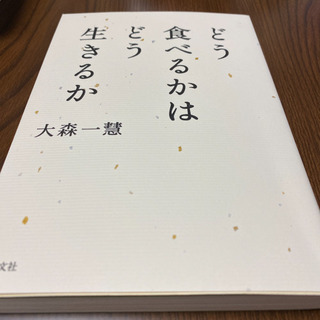 どう
食べるかは
どう
生きるか
大森一慧
文社